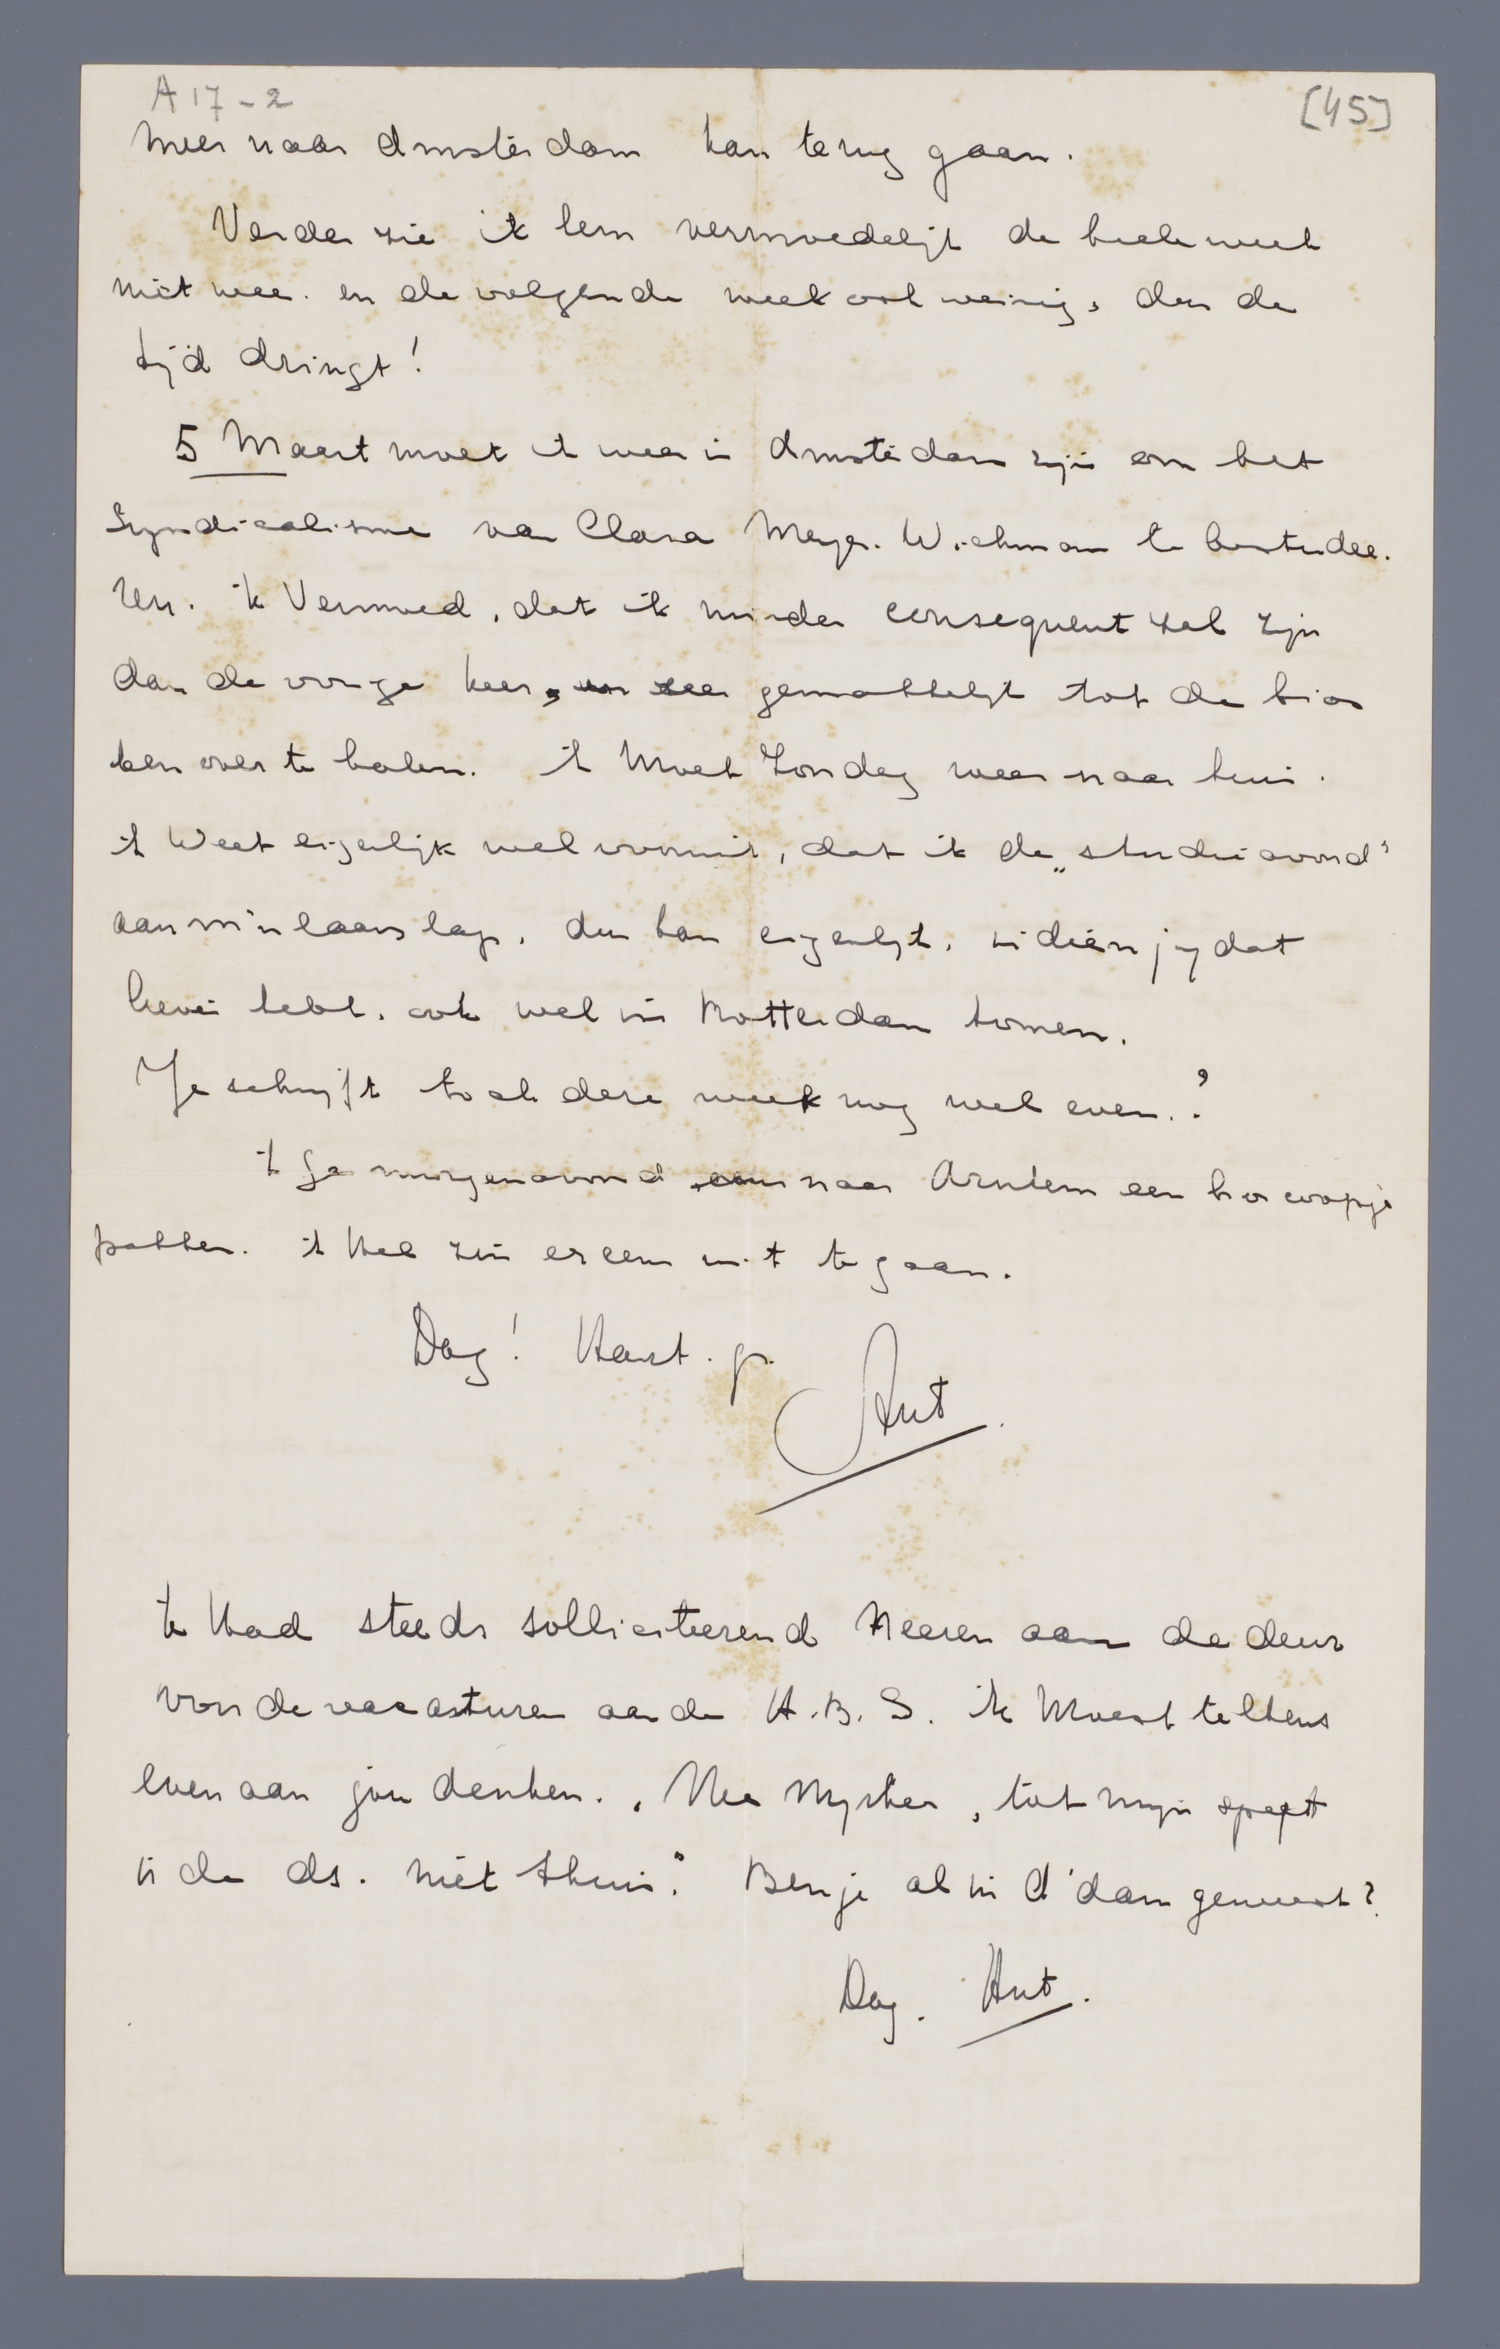 A 17 - 2
[45]
meer naar Amsterdam kan terug gaan.
Verder zie ik hem vermoedelijk de heele week
niet meer en de volgende week ook weinig, daar de
tijd dringt!
5 Maart moet ik weer in Amsterdam zijn om het
Syndicalisme van Clara Meyer-Wichmann te bestudee-
ren. ik Vermoed, dat ik minder consequent zal zijn
dan de vorige keer, gemakkelijk tot de bios
ben over te halen. ik Moet Zondag weer naar huis.
ik Weet eigenlijk wel vooruit, dat ik de „studieavond"
aan m'n laars lap, dus kan eigenlijk, indien jij dat
liever hebt, ook wel in Rotterdam komen.
Je schrijft toch deze week nog wel even.?
ik Ga morgenavond naar Arnhem een bioscoopje
pakken. ik Heb zin er eens uit te gaan.
Dag! Hart. gr.
Ant.
ik Had steeds solliciteerend Heeren aan de deur
voor de vacature aan de H.B.S. ik Moest telkens
even aan jou denken. „Nee Mijnheer, tot mijn spijt
is de ds. niet thuis." Ben je al in A'dam geweest?
Dag. Ant.